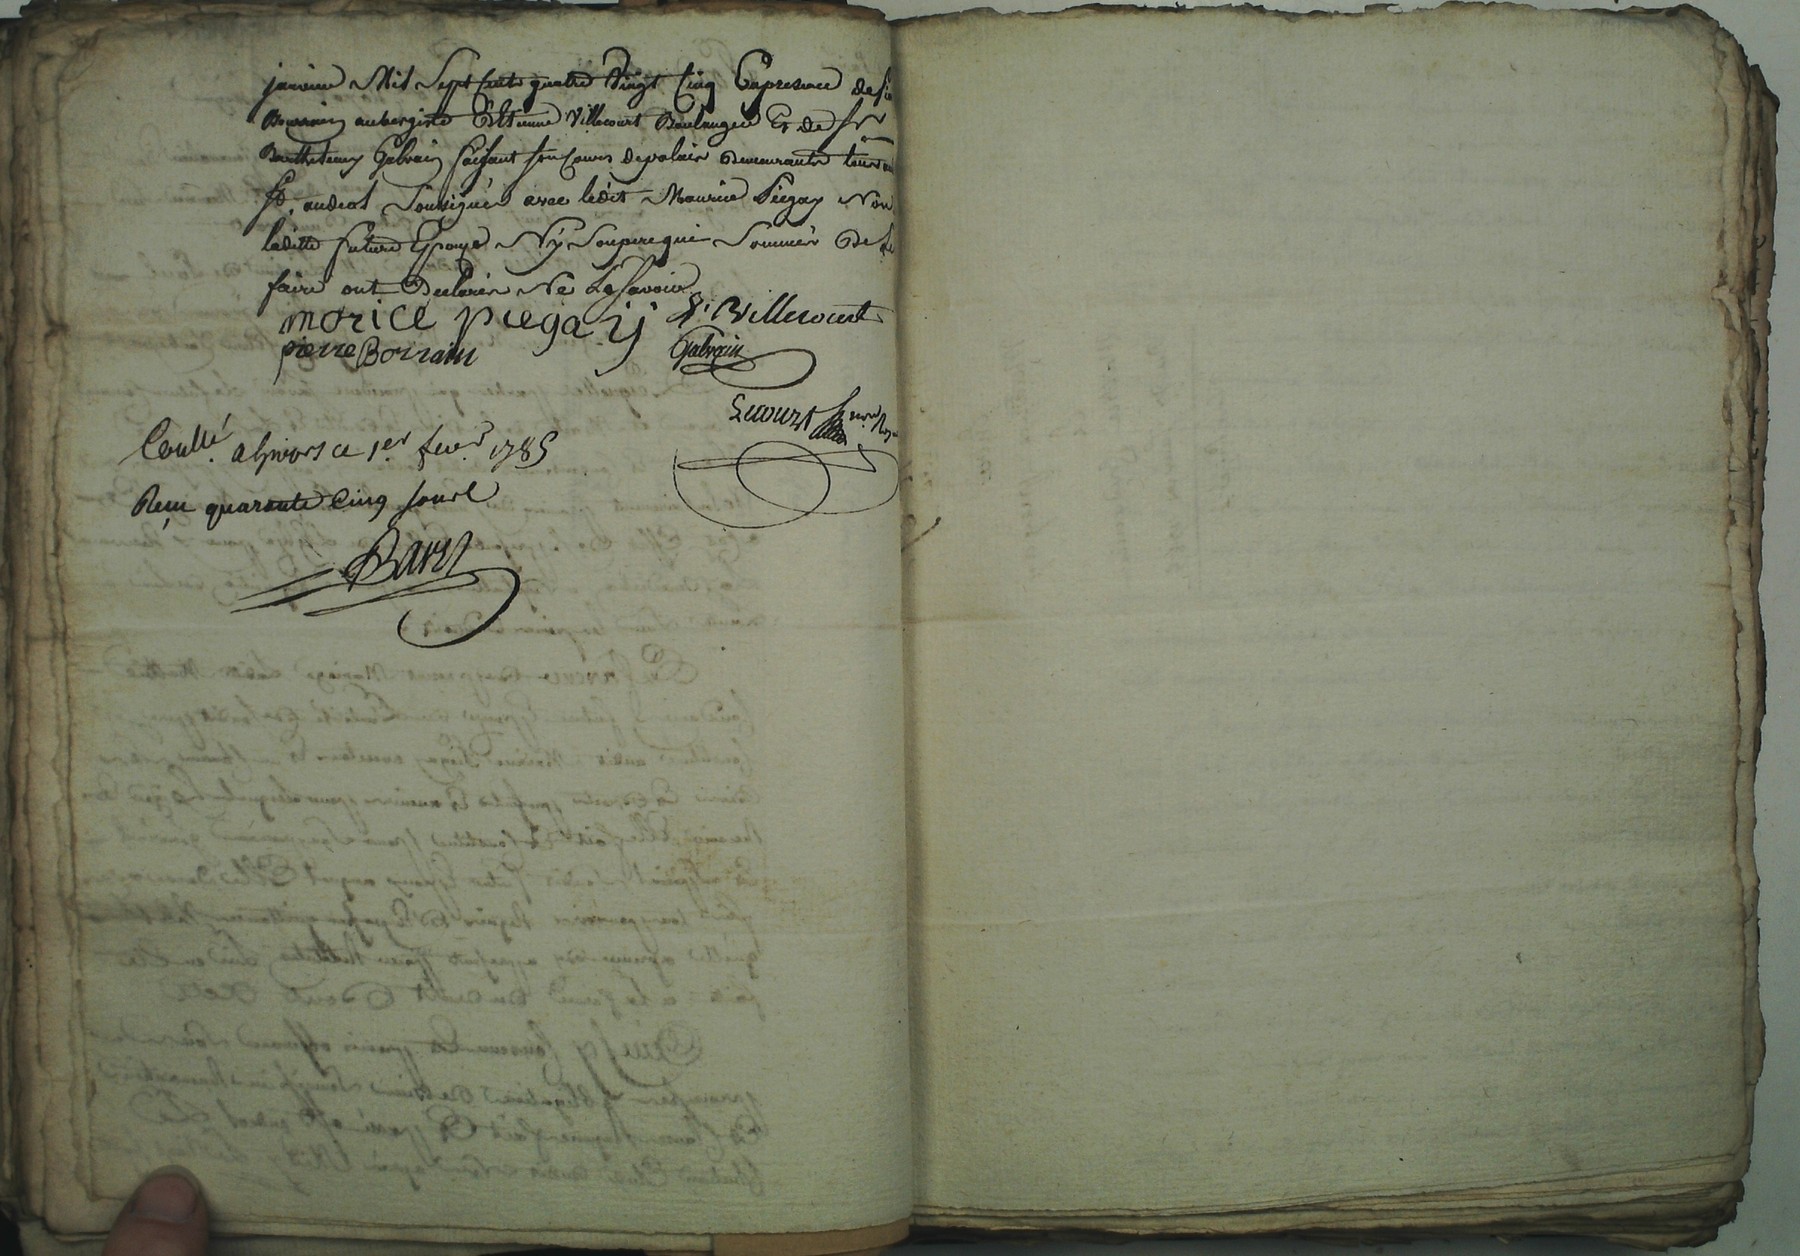 janvier Mil Sept Cent quatre Vingt Cinq En presence de Sr
Borrain aubergiste Ettienne Villecourt Boulanger Et de Sr
Barthelemy Galvain faisant son Cours depalais Demeurants tous au
St. andeol Soussignés avec ledit Maurice Piegay Non
laditte future Epouze Ny Son pere qui Sommés De le
faire ont Declarér Ne Le Savoir
morice piegay E. Villecourt
pierre Borrain Galvain
Lecourt Nre. Roy.
Coullé. a Givors ce 1er. fevr. 1785
Reçu quarante Cinq sous
Baret